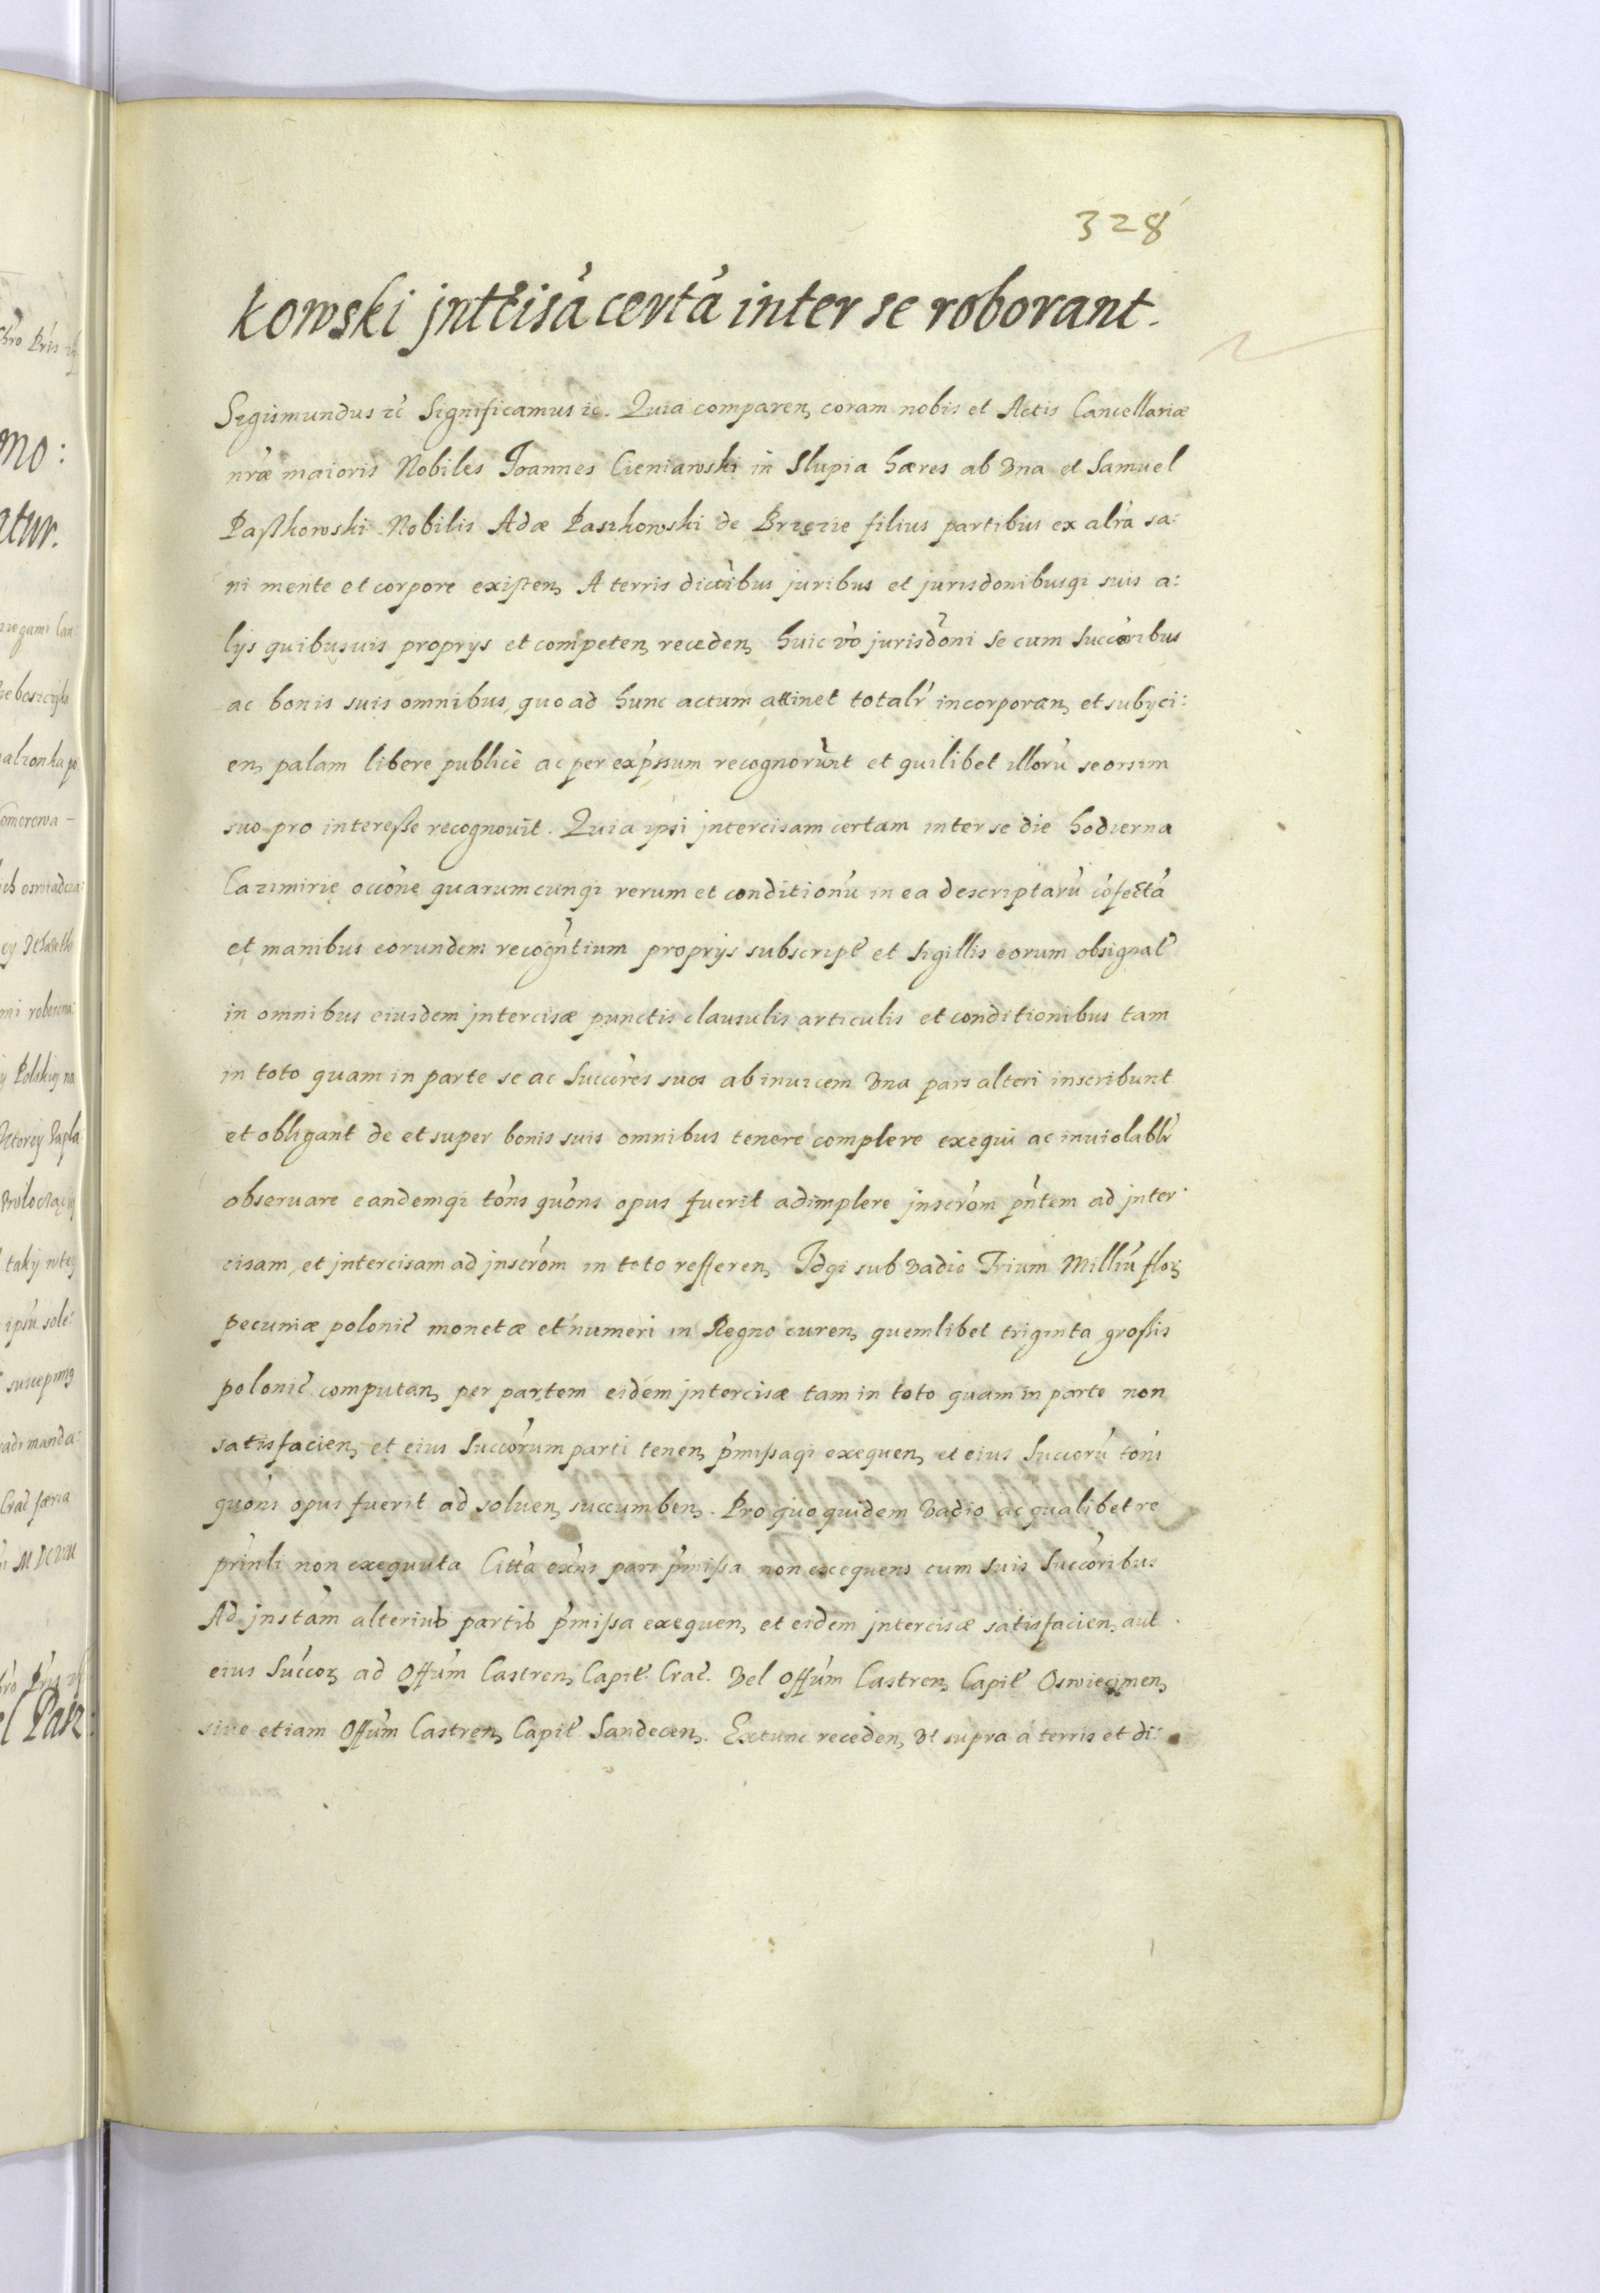 328
kowski jntẽisá certá inter se roborant.
Sigismundus ꝛc̃ Significamus ꝛc. Quia comparen, coram nobis et Actis Cancellariæ
nr̃æ maioris Nobiles Joannes Cieniawski in Slupia hæres ab Vna et Samuel
Paszkowski Nobilis Adæ Paszkowski de Brzezie filius partibus ex alr̃a sa:
ni mente et corpore existen, A terris dictĩbus juribus et jurisdonibusqꝫ suis a:
lijs quibusuis proprys et competen, receden, huic vo᷃ jurisdo᷃ni se cum succo᷃ribus
ac bonis suis omnibus, quo ad hunc actum attinet totalr̃ incorporan, et subyci:
en, palam libere publicè ac per exp̃ssum recognorũnt et quilibet illorũ seorsim
suo pro interesse recognouit. Quia ipsi jntercisam certam inter se die hodierna
Cazimirię occo᷃ne quarumcunqꝫ rerum et conditionũ in ea descriptarũ co᷃fectá
et manibus eorundem recogñtium proprijs subscript̃ et sigillis eorum obsignat̃
in omnibus eiusdem jntercisæ punctis clausulis articulis et conditionibus tam
in toto quam in parte se ac Succo᷃res suos ab inuicem Vna pars alteri inscribunt
et obligant de et super bonis suis omnibus tenere complere exequi ac inuiolablr̃
obseruare eandemqꝫ to᷃ns quo᷃ns opus fuerit adimplere jnscro᷃m pñtem ad jnter
cisam, et jntercisam ad jnscro᷃m in toto refferen, Idqꝫ sub Vadio Trium Milliũ flor,
pecuniæ polonic̃ monetæ et numeri in Regno curen, quemlibet triginta grossis
polonic̃ computan, per partem eidem jntercisæ tam in toto quam in parte non
satisfacien, et eius Succo᷃rum parti tenen, p̃missaqꝫ exequen, et eius Succorũ to᷃ns
quo᷃ns opus fuerit ad soluen, succumben,. Pro quo quidem Vadio ac qualibet re
prinli non exequuta Citt̃a exñs pars p̃missa non exequens cum suis Succo᷃ribus
Ad jnstãm alterius partis p̃missa exequen, et eidem jntercisæ satisfacien, aut
eius Succor, ad Offũm Castren, Capit̃. Crac̃. Vel Offũm Castren, Capit̃ Oswiecimen,
siue etiam Offũm Castren, Capit̃ Sandecen,. Extunc receden, Vt supra à terris et di: